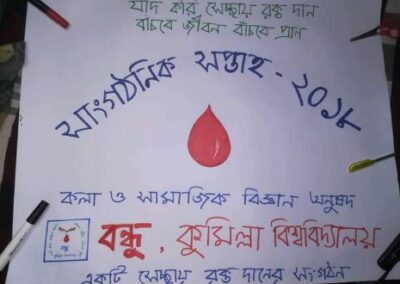 যদি করি স্বেচ্ছায় রক্ত দান
বাঁচবে জীবন বাঁচবে প্রাণ
সাংগঠনিক সপ্তাহ - ২০১৮
কলা ও সামাজিক বিজ্ঞান অনুষদ
বন্ধু, কুমিল্লা বিশ্ববিদ্যালয়
একটি স্বেচ্ছায় রক্ত দানের সংগঠন